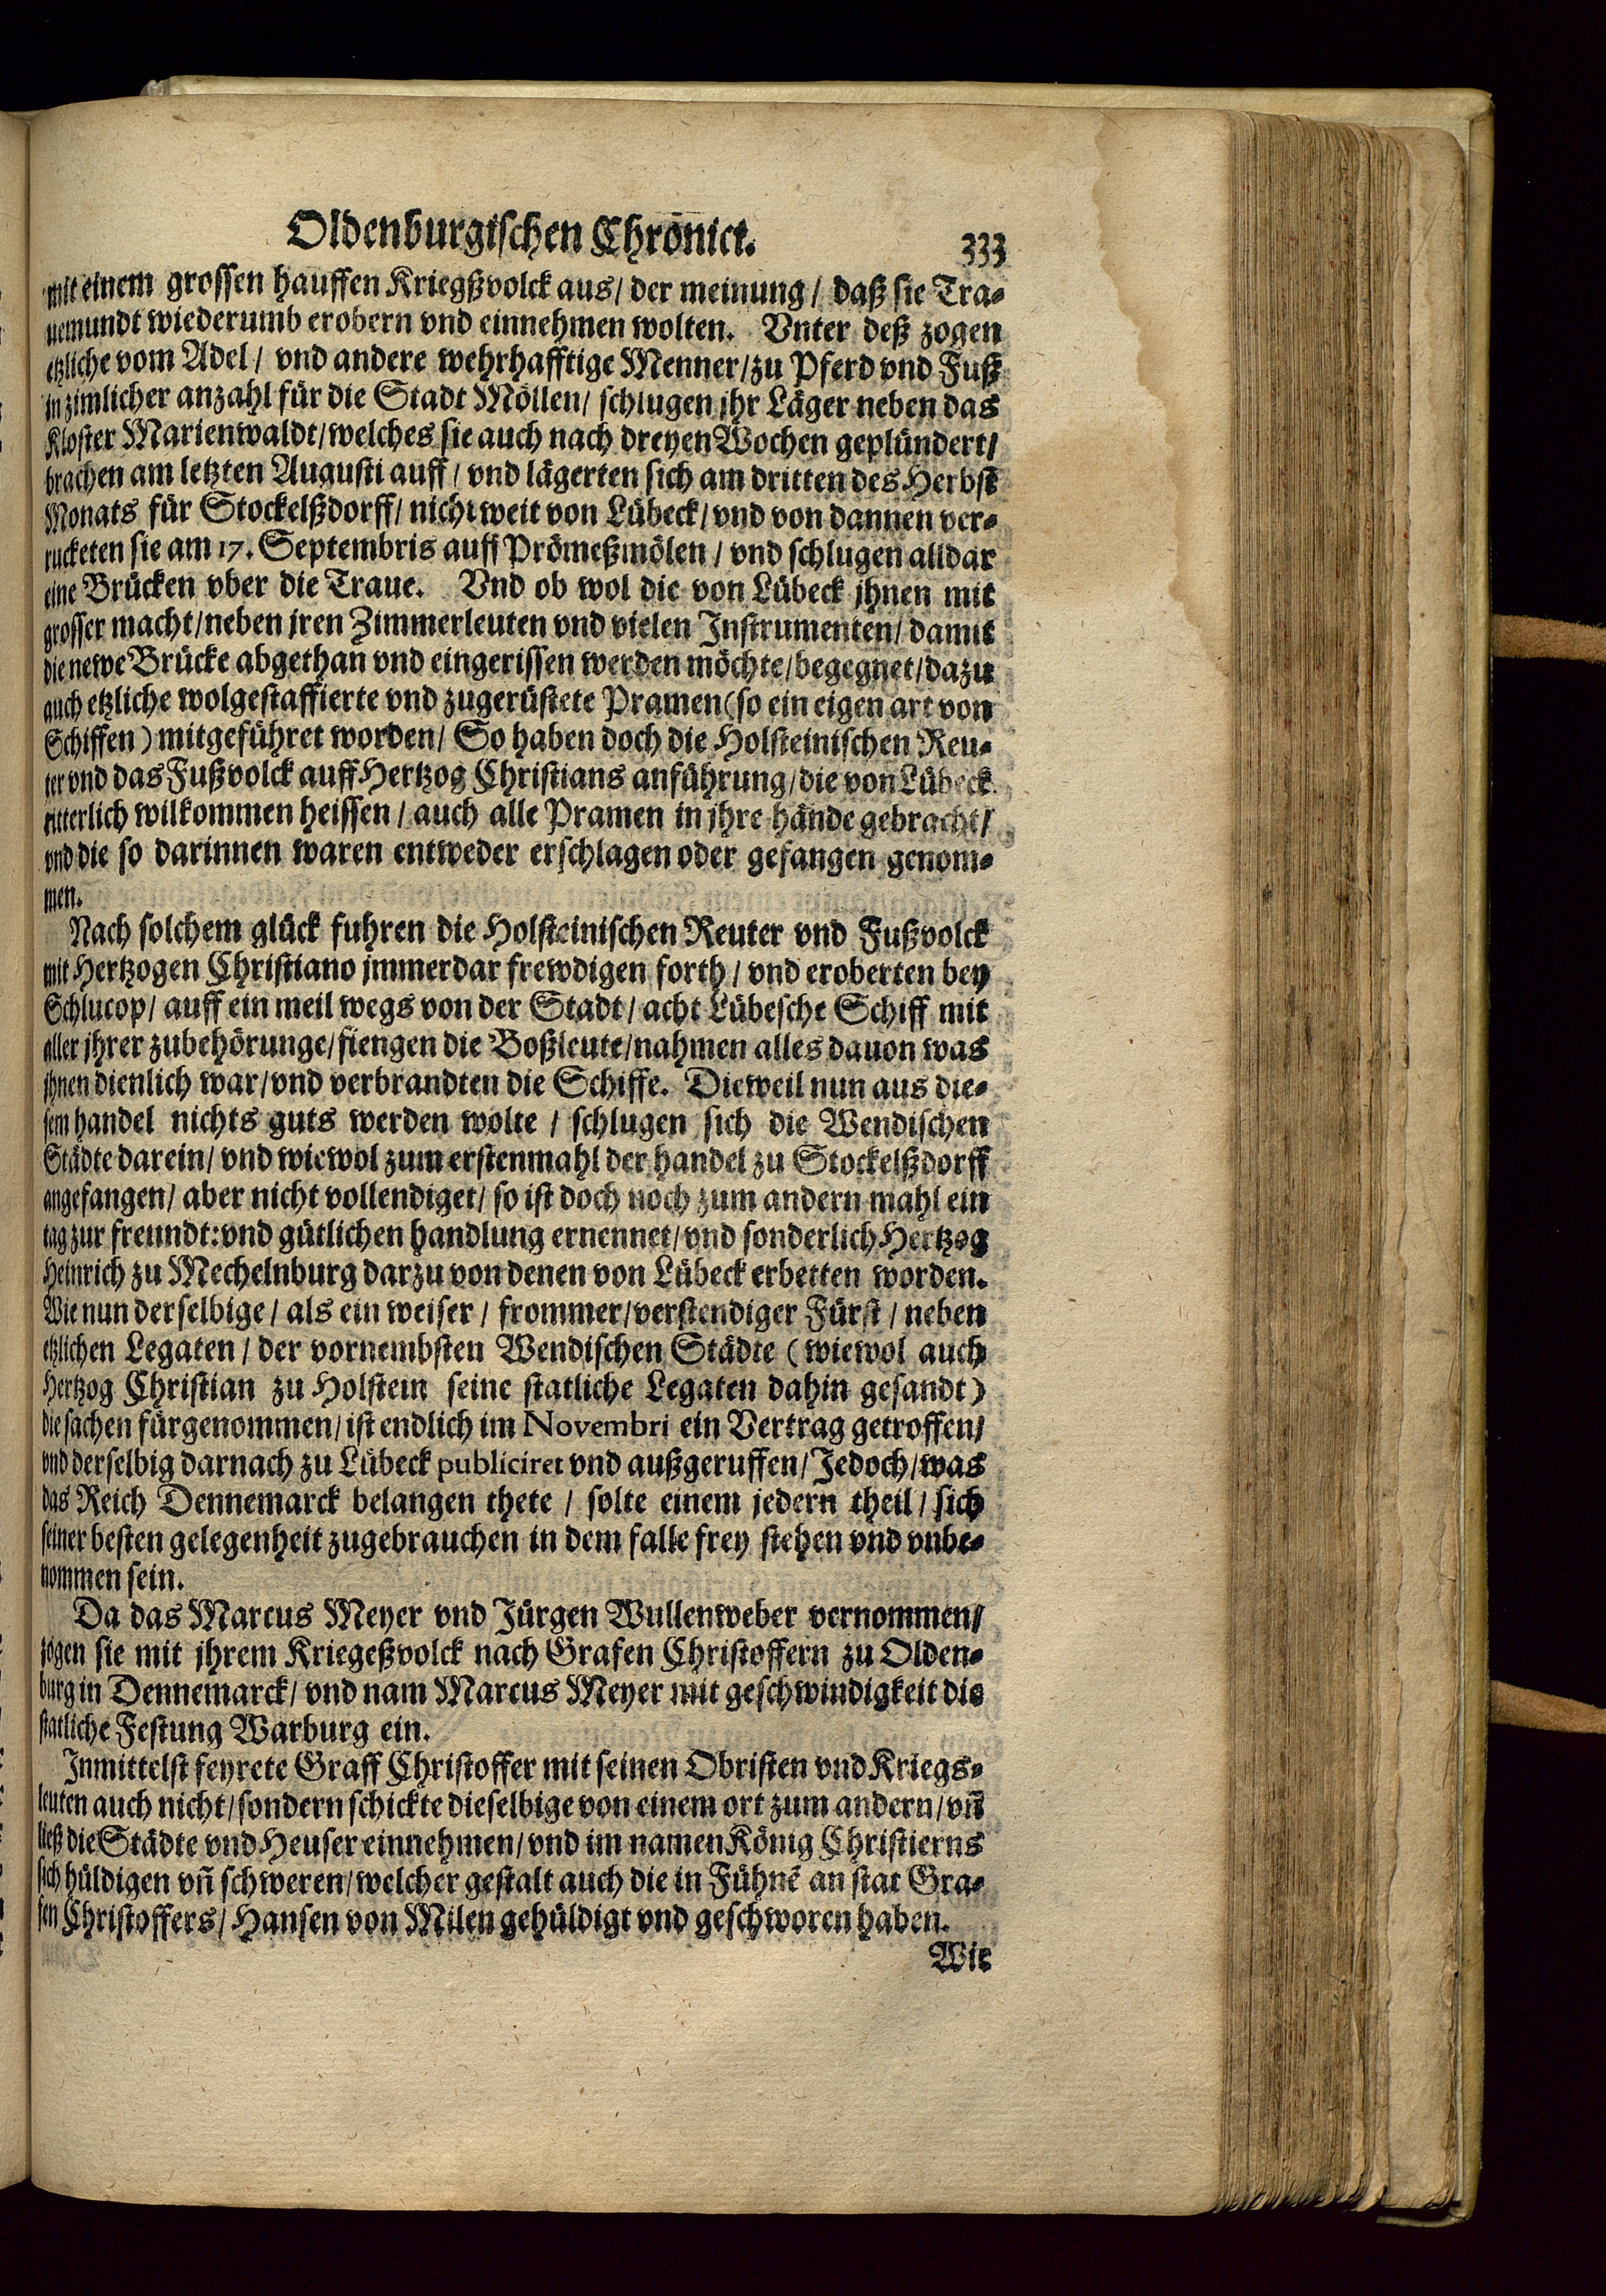 Oldenburgischen Chronict. 333
mit einem grossen hauffen Kriegßvolck aus/ der meinung/ daß sie Tra-
uemundt wiederumb erobern vnd einnehmen wolten. Vnter deß zogen
etzliche vom Adel/ vnd andere wehrhafftige Menner/zu Pferd vnd Fuß
in zimlicher anzahl für die Stadt Möllen/ schlugen jhr Läger neben das
Kloster Marienwaldt/welches sie auch nach dreyen Wochen geplündert/
brachen am letzten Augusti auff/ vnd lägerten sich am dritten des Herbst
Monats für Stockelßdorff/ nicht weit von Lübeck/ vnd von dannen ver-
rucketen sie am 17. Septembris auff Prömeßmölen/ vnd schlugen alldar
eine Brücken vber die Traue. Vnd ob wol die von Lübeck jhnen mit
grosser macht/neben jren Zimmerleuten vnd vielen Instrumenten/ damit
die newe Brücke abgethan vnd eingerissen werden möchte/begegnet/dazu
auch etzliche wolgestaffierte vnd zugerüstete Pramen (so ein eigen art von
Schiffen) mitgeführet worden/ So haben doch die Holsteinischen Reu-
ter vnd das Fußvolck auff Hertzog Christians anführung/die von Lübeck
ritterlich wilkommen heissen/ auch alle Pramen in jhre hände gebracht/
vnd die so darinnen waren entweder erschlagen oder gefangen genom-
men.
Nach solchem glück fuhren die Holsteinischen Reuter vnd Fußvolck
mit Hertzogen Christiano jmmerdar frewdigen forth/ vnd eroberten bey
Schlucop/ auff ein meil wegs von der Stadt/ acht Lübesche Schiff mit
aller jhrer zubehörunge/fiengen die Boßleute/nahmen alles dauon was
jhnen dienlich war/vnd verbrandten die Schiffe. Dieweil nun aus die-
sem handel nichts guts werden wolte/ schlugen sich die Wendischen
Städte darein/ vnd wiewol zum erstenmahl der handel zu Stockelßdorff
angefangen/ aber nicht vollendiget/ so ist doch noch zum andern mahl ein
tag zur freundt: vnd gütlichen handlung ernennet/vnd sonderlich Hertzog
Heinrich zu Mechelnburg darzu von denen von Lübeck erbetten worden.
Wie nun derselbige/ als ein weiser/ frommer/verstendiger Fürst/ neben
etzlichen Legaten/ der vornembsten Wendischen Städte (wiewol auch
Hertzog Christian zu Holstein seine statliche Legaten dahin gesandt)
die sachen fürgenommen/ist endlich im Novembri ein Vertrag getroffen/
vnd derselbig darnach zu Lübeck publiciret vnd außgeruffen/Jedoch/was
das Reich Dennemarck belangen thete/ solte einem jedern theil/ sich
seiner besten gelegenheit zugebrauchen in dem falle frey stehen vnd vnbe-
nommen sein.
Da das Marcus Meyer vnd Jürgen Wullenweber vernommen/
zogen sie mit jhrem Kriegeßvolck nach Grafen Christoffern zu Olden-
burg in Dennemarck/ vnd nam Marcus Meyer mit geschwindigkeit die
statliche Festung Warburg ein.
Inmittelst feyrete Graff Christoffer mit seinen Obristen vnd Kriegs-
leuten auch nicht/sondern schickte dieselbige von einem ort zum andern/vn̄
ließ die Städte vnd Heuser einnehmen/vnd im namen König Christierns
sich hüldigen vn̄ schweren/welcher gestalt auch die in Fühnē an stat Gra-
fen Christoffers/ Hansen von Milen gehüldigt vnd geschworen haben.
Wie